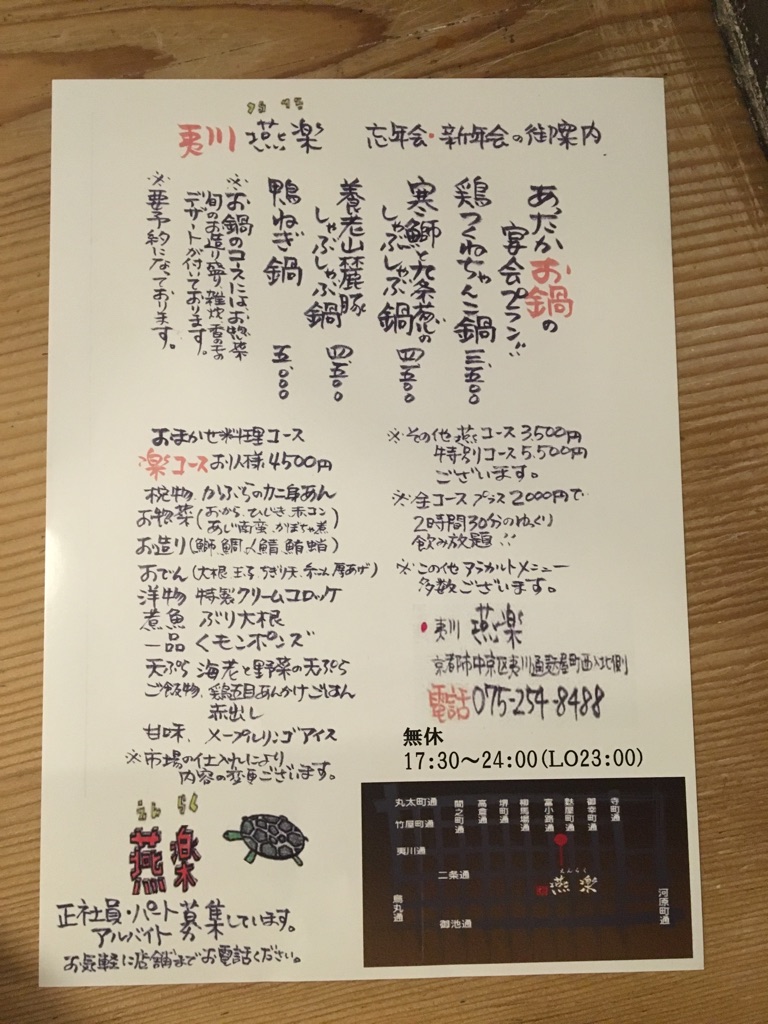 えん らく
夷川 燕楽 忘年会・新年会の御案内
あったかお鍋の
宴会プラン!!
鶏つくねちゃんこ鍋 三、五〇〇
寒鰤と九条葱の
しゃぶしゃぶ鍋 四、五〇〇
養老山麓豚
しゃぶしゃぶ鍋 四、五〇〇
鴨ねぎ鍋 五、〇〇〇
※お鍋のコースにはお惣菜
旬のお造り盛り、雑炊、香の子の
デザートが付いております。
※要予約になっております。
おまかせ料理コース
楽コースお1人様 4500円
椀物 かぶらのカニ身あん
お惣菜(おから、ひじき、赤コン
あじ南蛮、かぼちゃ煮)
お造り(鰤 鯛 〆鯖 鮪 蛸)
おでん(大根 玉子 ちぎり天 厚あげ)
洋物 特製クリームコロッケ
煮魚 ぶり大根
一品 くモンポンズ
天ぷら 海老と野菜の天ぷら
ご飯物、鶏五目あんかけごはん
赤出し
甘味、メープルリンゴアイス
※市場の仕入れにより
内容の変更ございます。
※その他 燕コース 3,500円
特別コース 5,500円
ございます。
※全コース プラス 2000円で
2時間30分のゆっくり
飲み放題!!
※この他アラカルトメニュー
多数ございます。
・夷川 燕楽
京都市中京区夷川通麩屋町西入北側
電話 075-254-8488
無休
17:30〜24:00(LO23:00)
えん らく
燕楽
正社員・パート
アルバイト 募集しています。
お気軽に店舗までお電話ください。
丸太町通
竹屋町通
夷川通
二条通
御池通
烏丸通
間之町通
高倉通
堺町通
柳馬場通
富小路通
麩屋町通
御幸町通
寺町通
河原町通
えんらく
燕楽